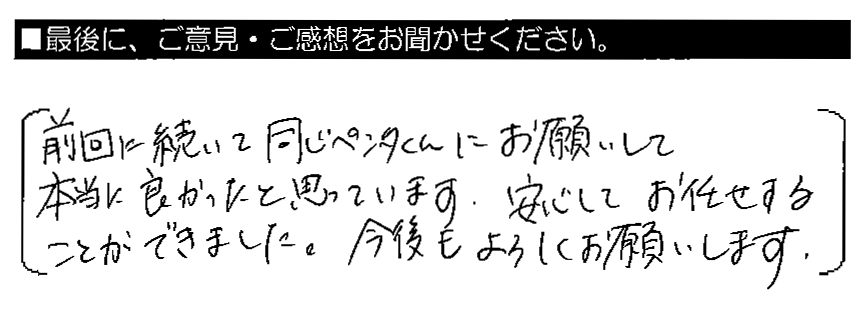 ■最後に、ご意見・ご感想をお聞かせください。
前回に続いて同じペンタくんにお願いして
本当に良かったと思っています。安心してお任せする
ことができました。今後もよろしくお願いします。